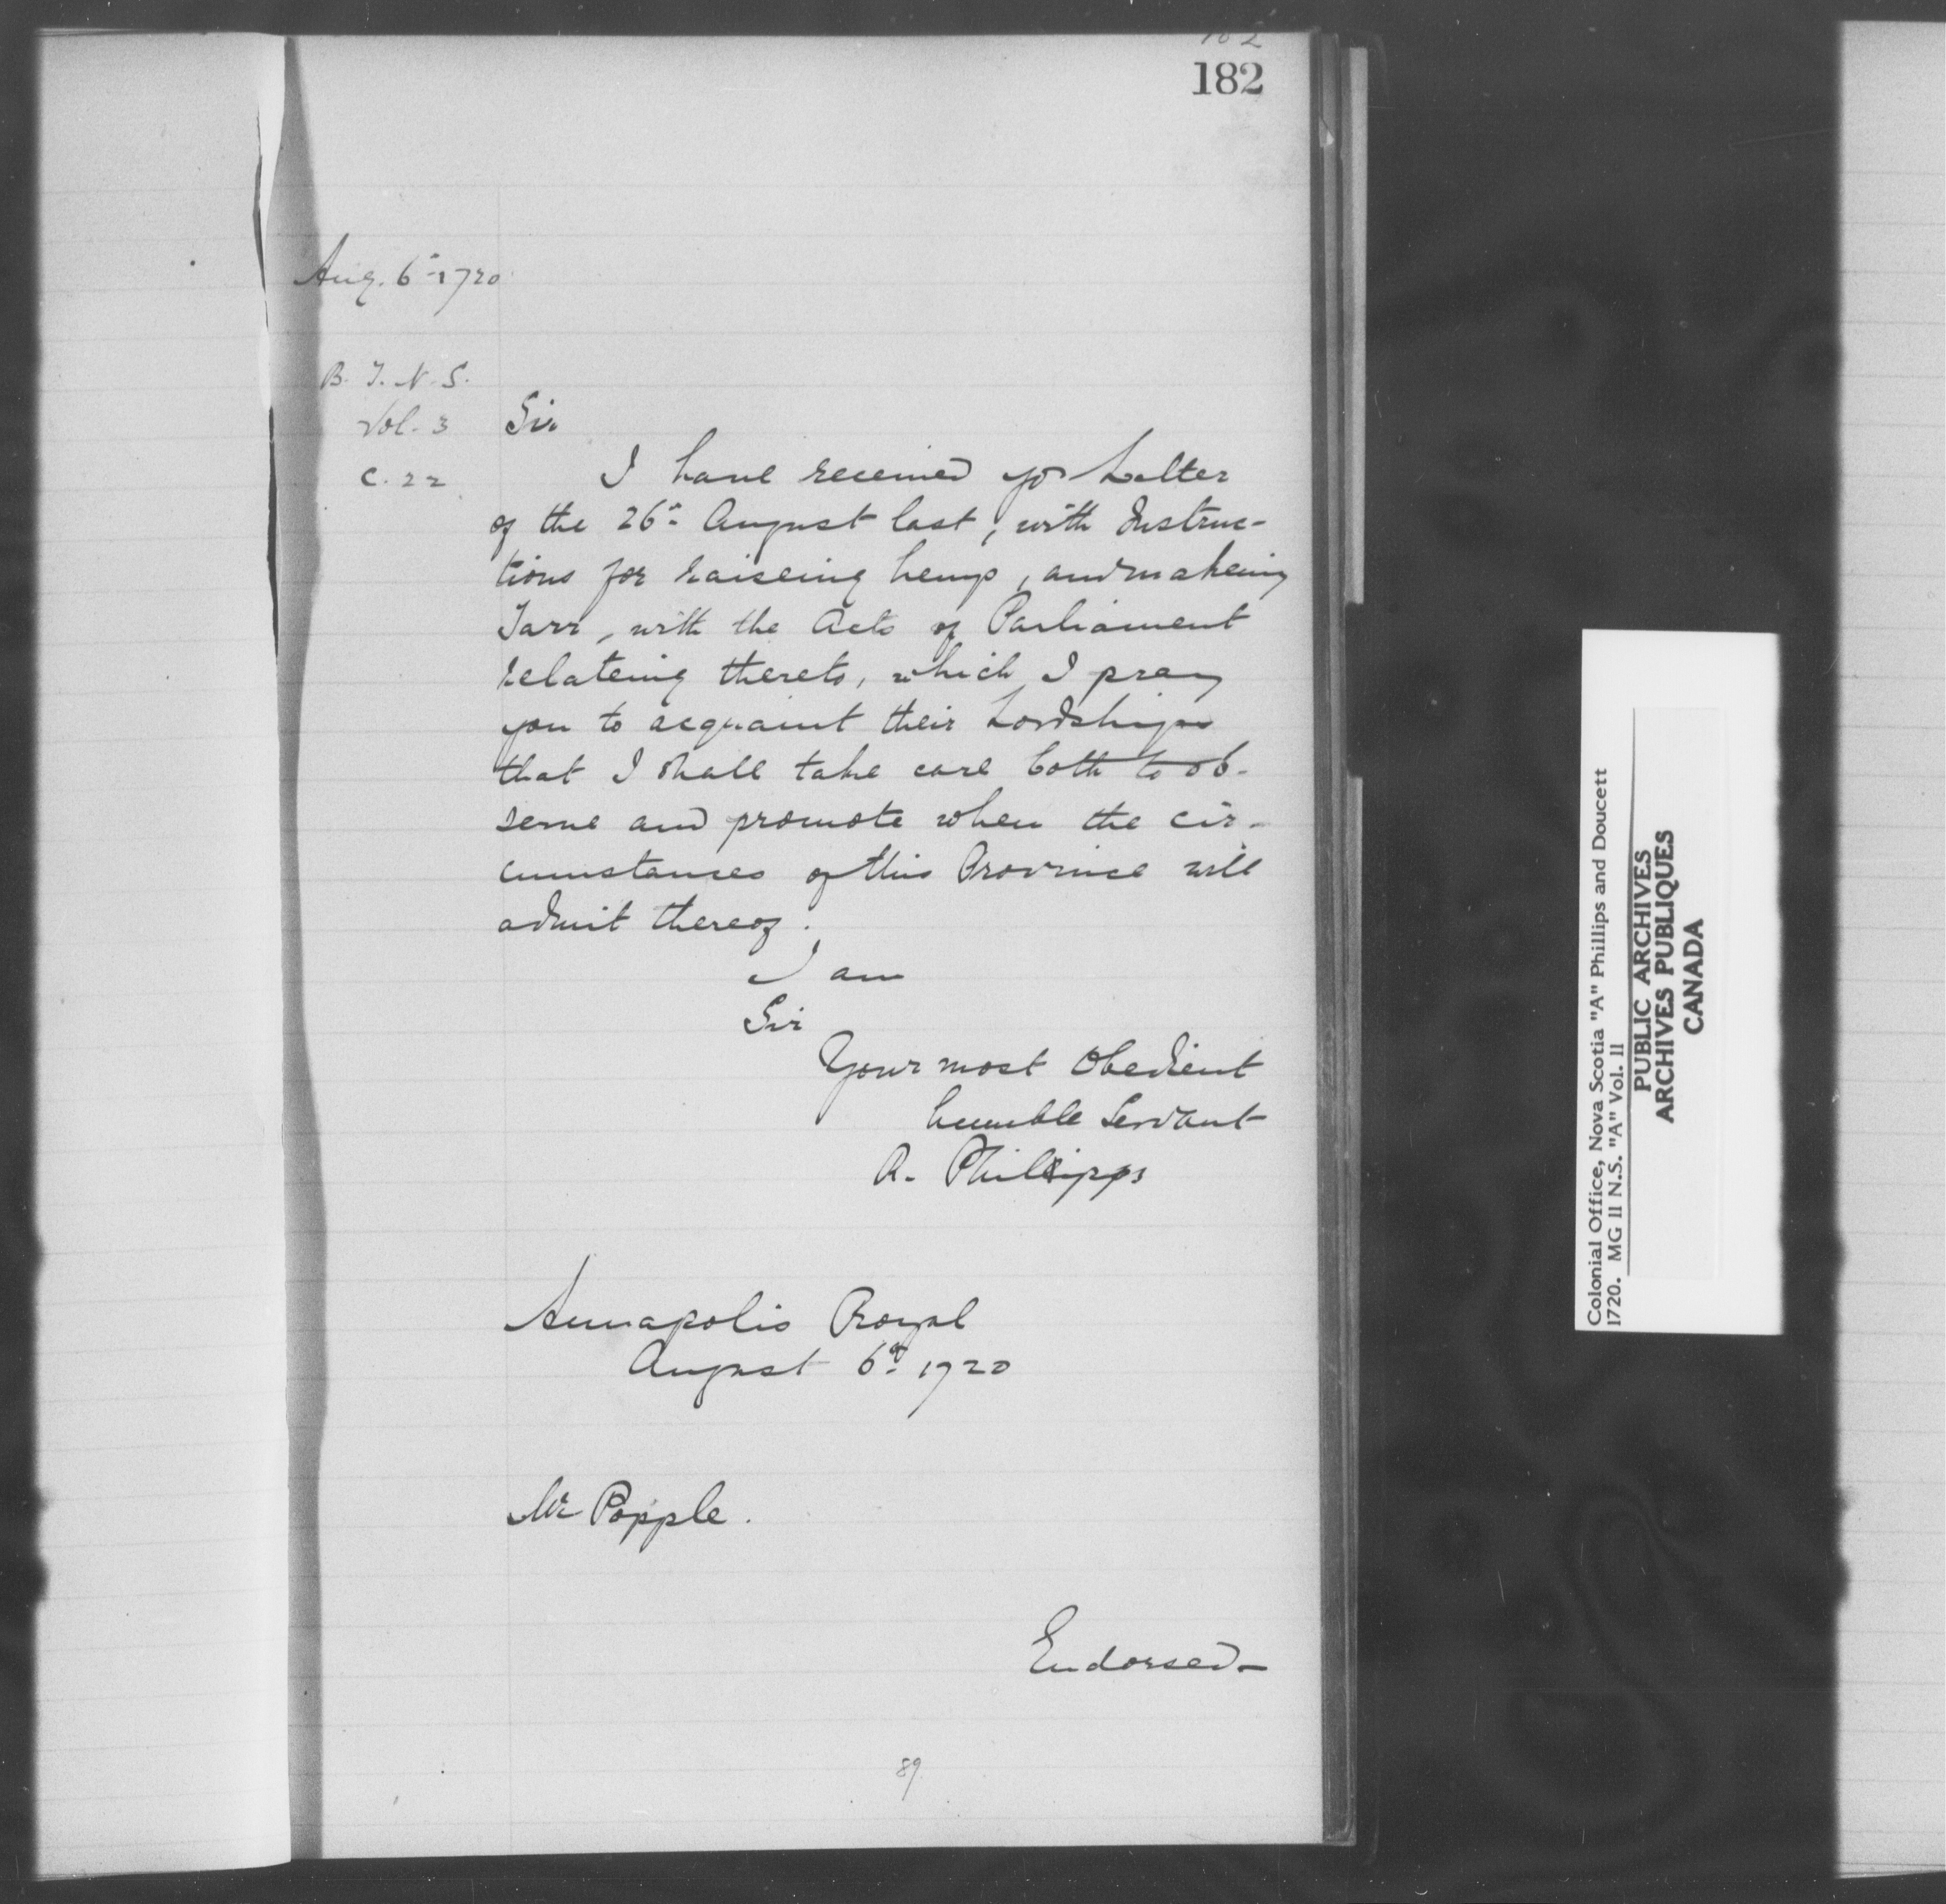 182
Aug. 6th 1720
B. T. N. S.
Vol. 3
C. 22
Sir
I have received yor Letter
of the 26th August last, with Instruc-
tions for raiseing hemp, and makeing
Tarr, with the Acts of Parliament
relateing thereto, which I pray
you to acquaint their Lordships
that I shall take care both to ob-
serve and promote when the cir-
cumstances of this Province will
admit thereof.
I am
Sir
Your most Obedient
humble Servant
R. Phillipps
Annapolis Royal
August 6th 1720
Mr Popple.
Endorsed-
89
Colonial Office, Nova Scotia "A" Phillips and Doucett
1720. MG 11 N.S. "A" Vol. 11
PUBLIC ARCHIVES
ARCHIVES PUBLIQUES
CANADA